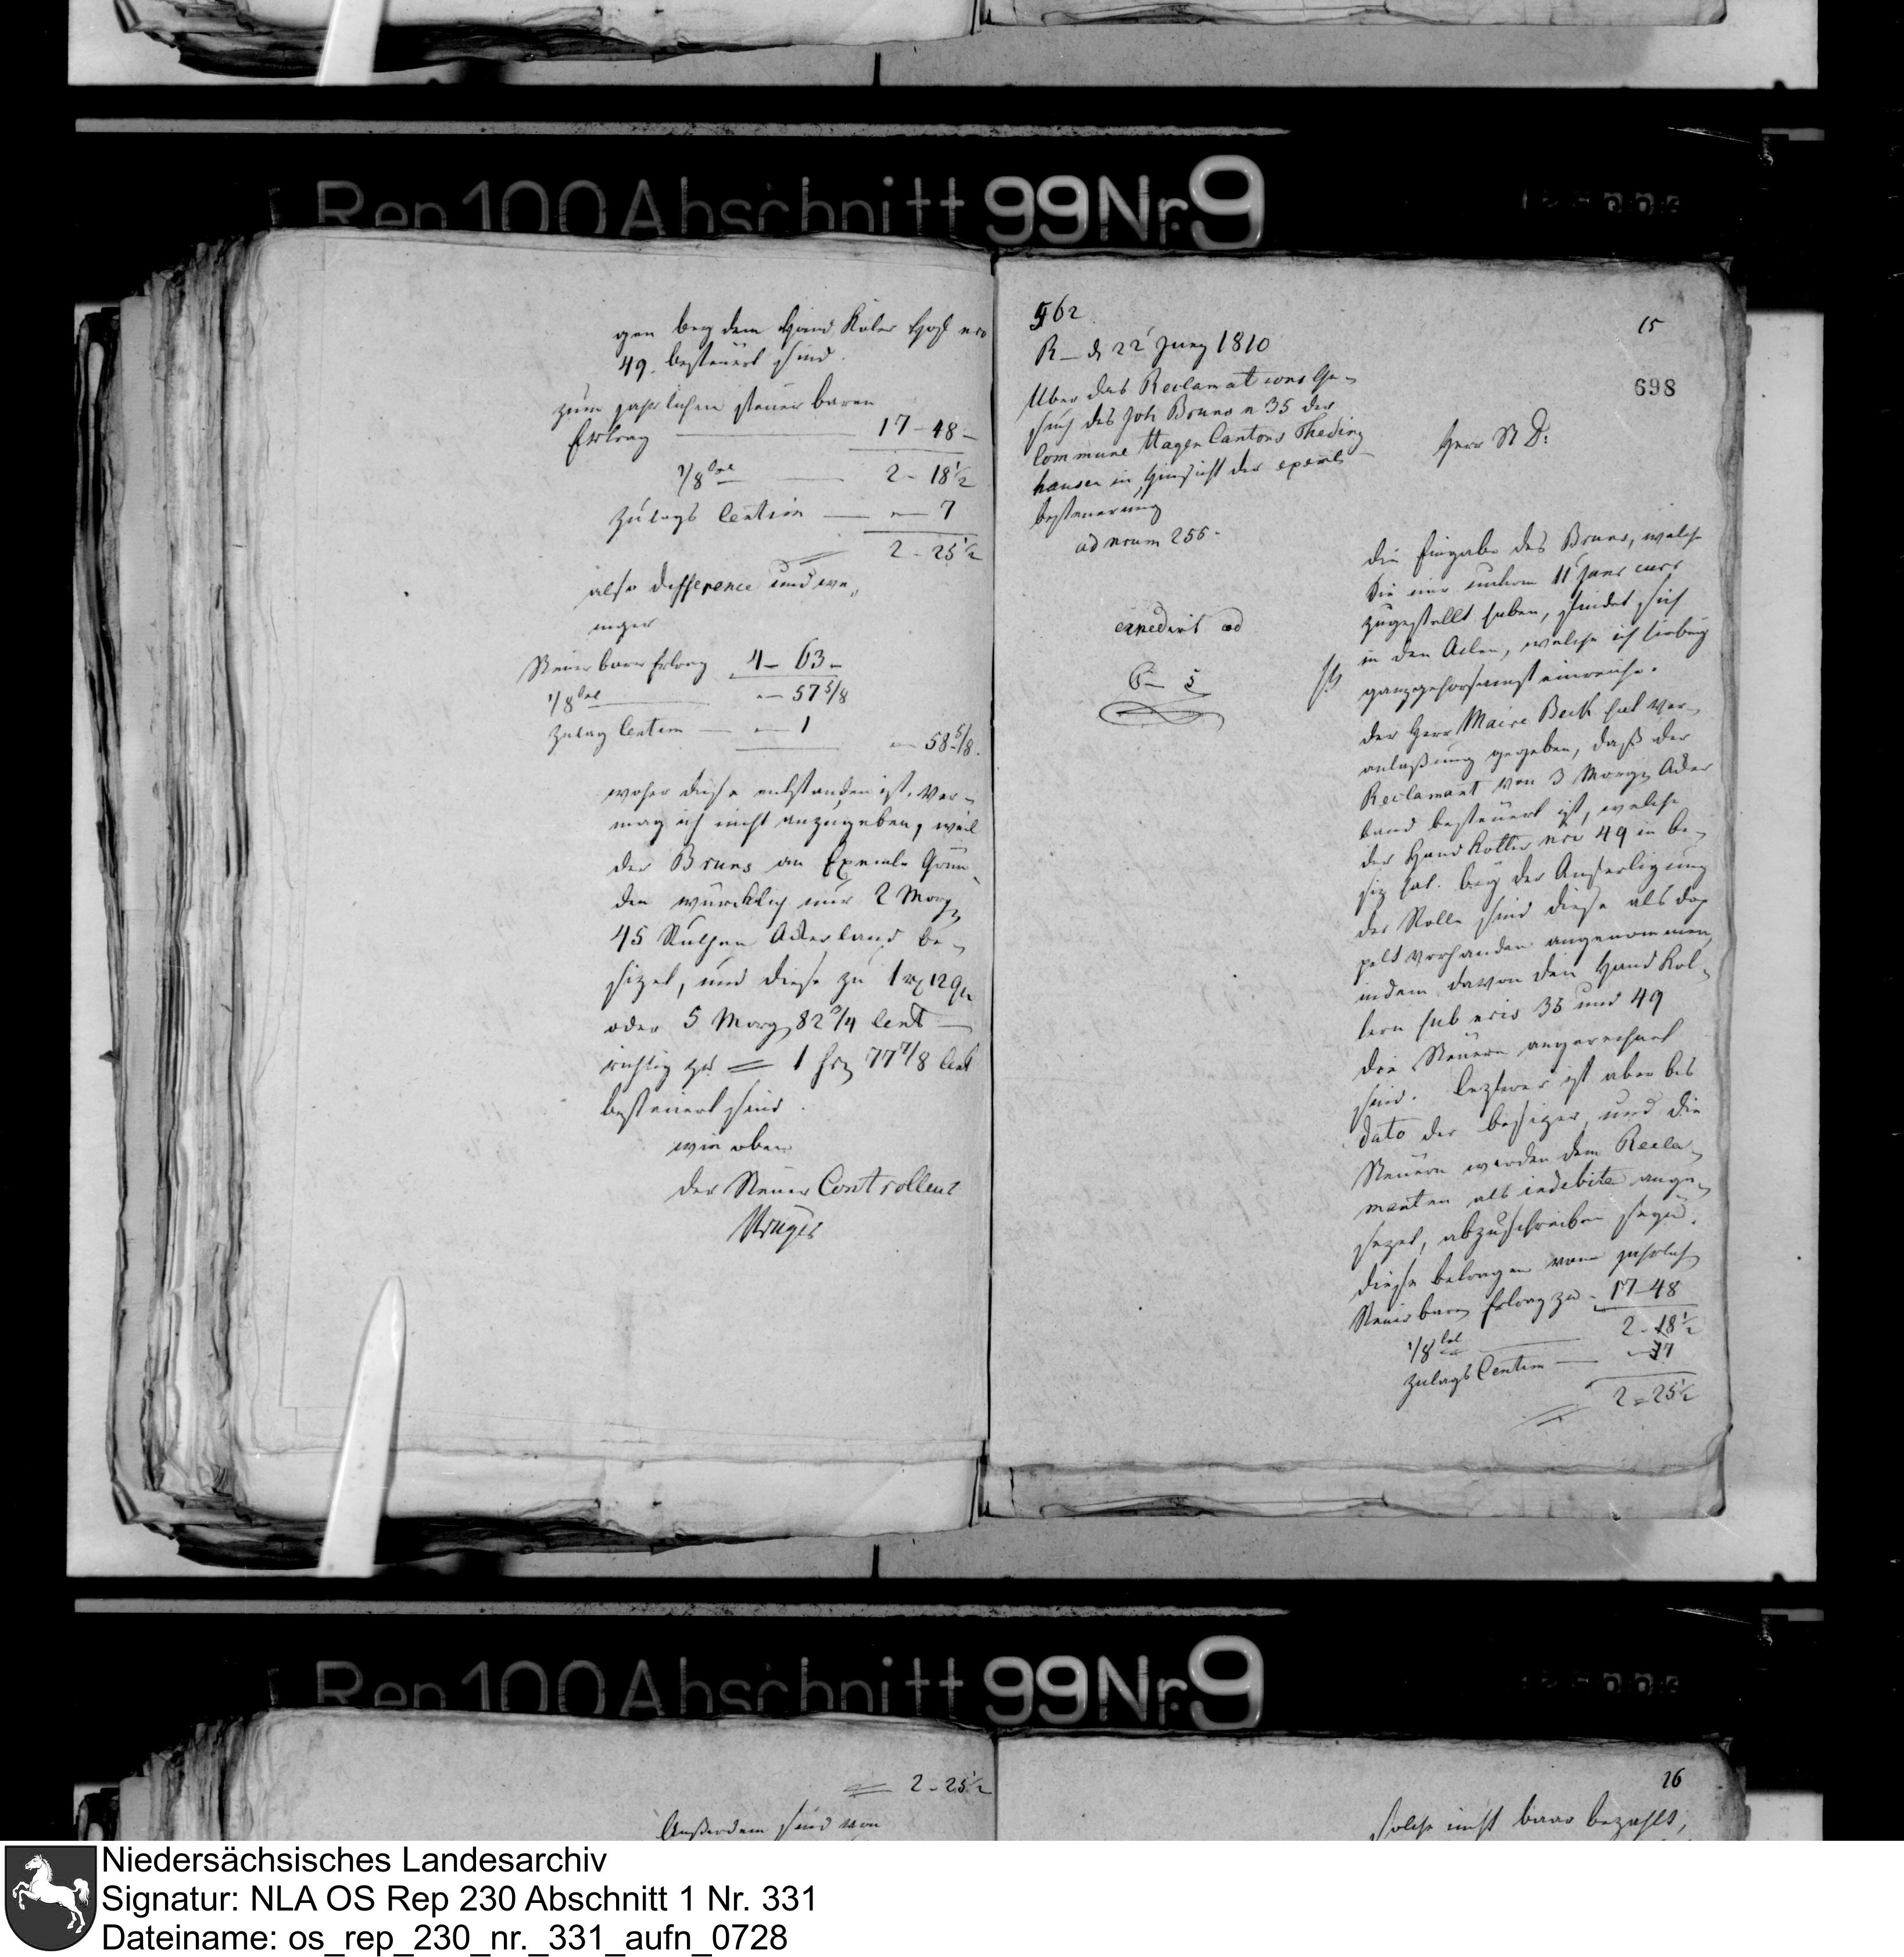 Rep 100 Abschnitt 99 Nr. 9
gen bey dem Hand Koler Hof nro
49. besteuert sind.
zum jährlichen steuerbaren
Ertrag 17-48-
1/8tel 2-18 1/2
Zulags Centim — 7
2-25 1/2
also difference und we,,
niger
Steuerbarer Ertrag 4-63-
1/8tel — 57 5/8
Zulag Centim — 1
— 58 5/8.
woher diese entstanden ist, ver-
mag ich nicht anzugeben, weil
der Bruns an Exemte Grün-
den würcklich nur 2 Morg
45 Ruthen Ackerland be-
sizet, und diese zu 1 rx 12 gr
oder 5 Morg 82 3/4 Cent
richtig zu = 1 frz 77 7/8 Cent
besteuert sind.
wie oben
der Steuer Controlleur
Kruger
562
R- d 22 Juny 1810
Uber das Reclamations Ge-
such des Joh Bruns n 35 der
Commune Hagen Cantons Theding
hausen in Hinsicht der exemt
besteuerung
ad nrum 256.
expedirt ad
15
698
Herr St D:
die Eingabe des Bruns, welche
Sie mir unterm 11 Janr curr
zugestellt haben, findet sich
in den Acten, welche ich hiebey
ganzgehorsamst einreiche.
der Herr Maire Beck hat Ver-
anlaßung gegeben, daß der
Reclamant von 3 Morg Acker
land besteuert ist, welche
der Hand Kotter nro 49 in be-
siz hat. bey der Anfertigung
der Rolle sind diese als dop
pelt vorhanden angenommen,
indem davon den Hand Kot-
tern sub nris 35 und 49
die Steuern angerechnet
sind. lezterer ist aber bis
dato der besizer und die
Steuern werden dem Recla-
manten als indebite ange-
sezet, abzuschreiben seyn.
diese betragen vom jährlich
Steuerbaren Ertrag zu - 17-48
1/8tel 2-18 1/2
Zulags Centim — 7
2-25 1/2
Rep 100 Abschnitt 99 Nr. 9
= 2-25 1/2
Außerdem sind von
26
solche nicht baar bezahlt,
Niedersächsisches Landesarchiv
Signatur: NLA OS Rep 230 Abschnitt 1 Nr. 331
Dateiname: os_rep_230_nr._331_aufn_0728